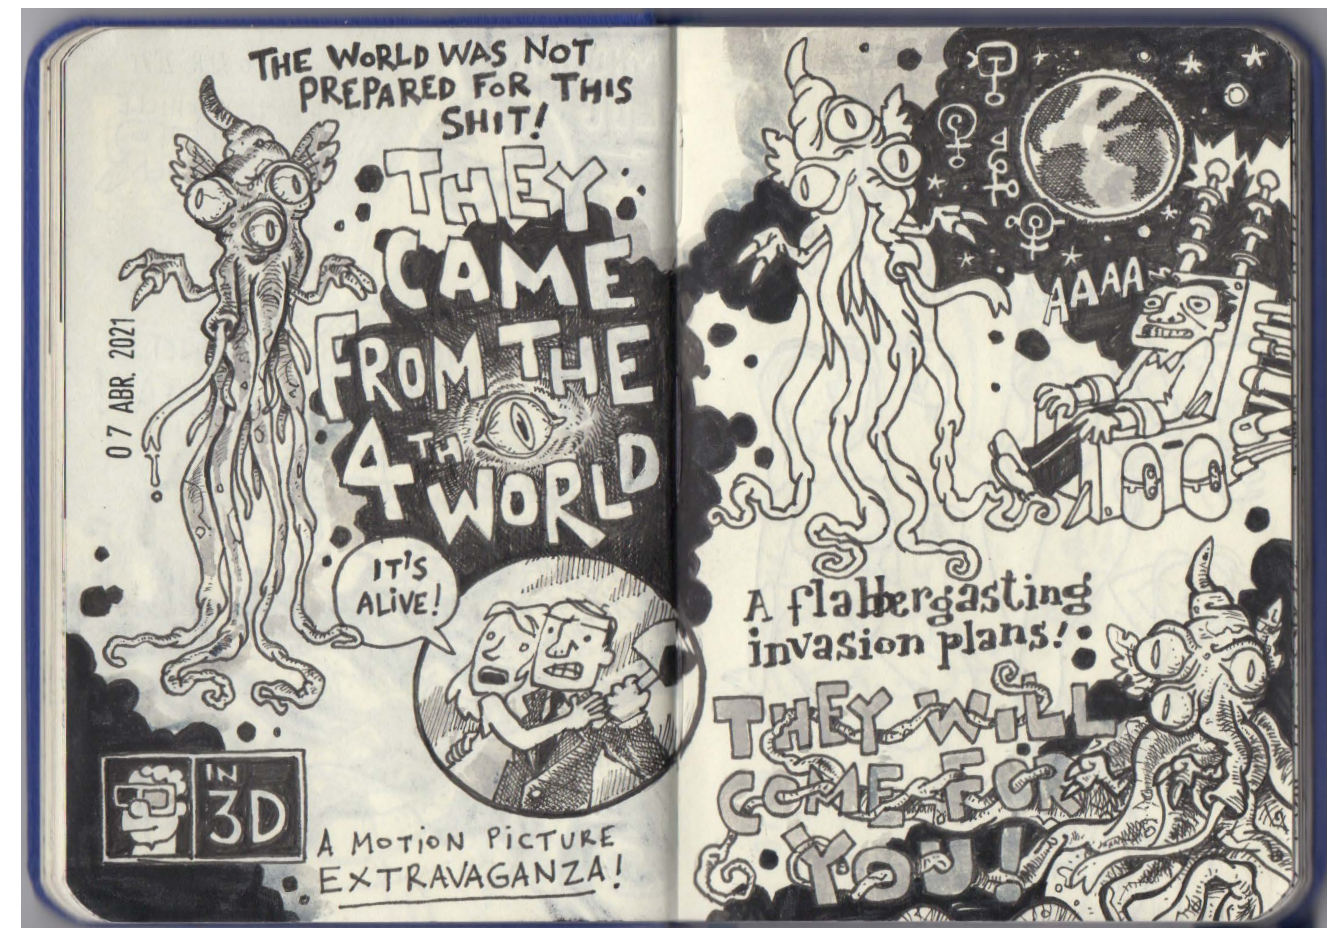 THE WORLD WAS NOT
PREPARED FOR THIS
SHIT!
THEY
CAME
FROM THE
4TH
WORLD
07 ABR. 2021
IT'S
ALIVE!
IN
3D
A MOTION PICTURE
EXTRAVAGANZA!
AAAA
A flabbergasting
invasion plans!
THEY WILL
COME FOR
YOU!